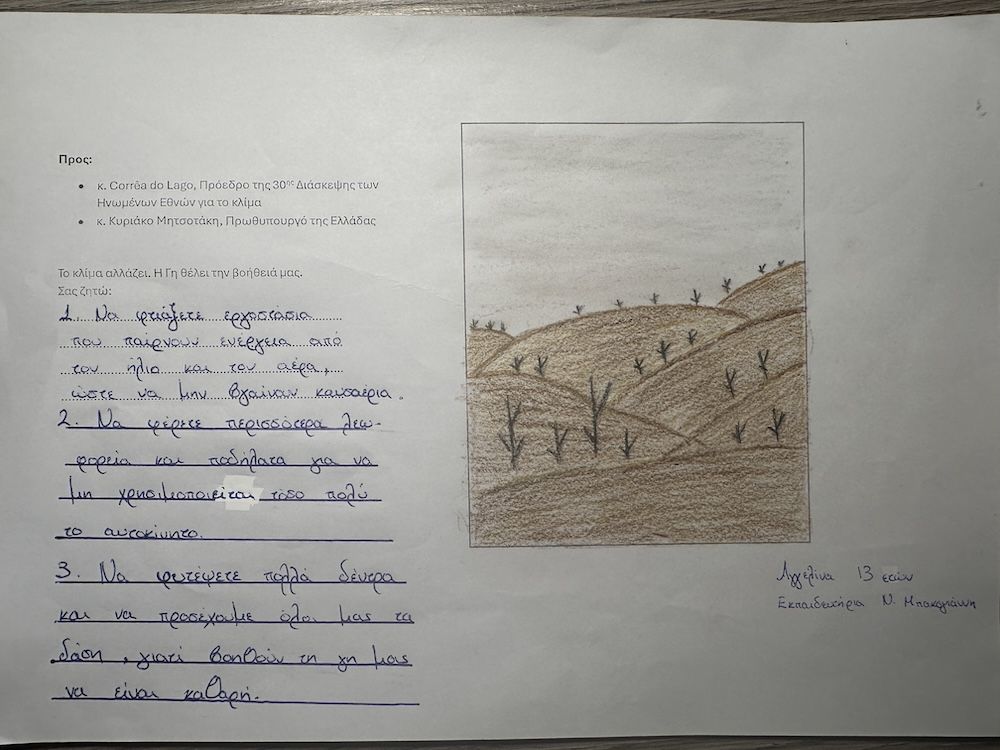 Προς:
• κ. Corrêa do Lago, Πρόεδρο της 30ης Διάσκεψης των
Ηνωμένων Εθνών για το κλίμα
• κ. Κυριάκο Μητσοτάκη, Πρωθυπουργό της Ελλάδας
Το κλίμα αλλάζει. Η Γη θέλει την βοήθειά μας.
Σας ζητώ:
1. Να φτιάξετε εργοστάσια
που παίρνουν ενέργεια από
τον ήλιο και τον αέρα,
ώστε να μην βγαίνουν καυσαέρια.
2. Να φέρετε περισσότερα λεω-
φορεία και ποδήλατα για να
μη χρησιμοποιείται τόσο πολύ
το αυτοκίνητο.
3. Να φυτέψετε πολλά δέντρα
και να προσέχουμε όλοι μας τα
δάση, γιατί βοηθούν τη γη μας
να είναι καθαρή.
Αγγελίνα 13 ετών
Εκπαιδευτήρια Ν. Μπακογιάννη